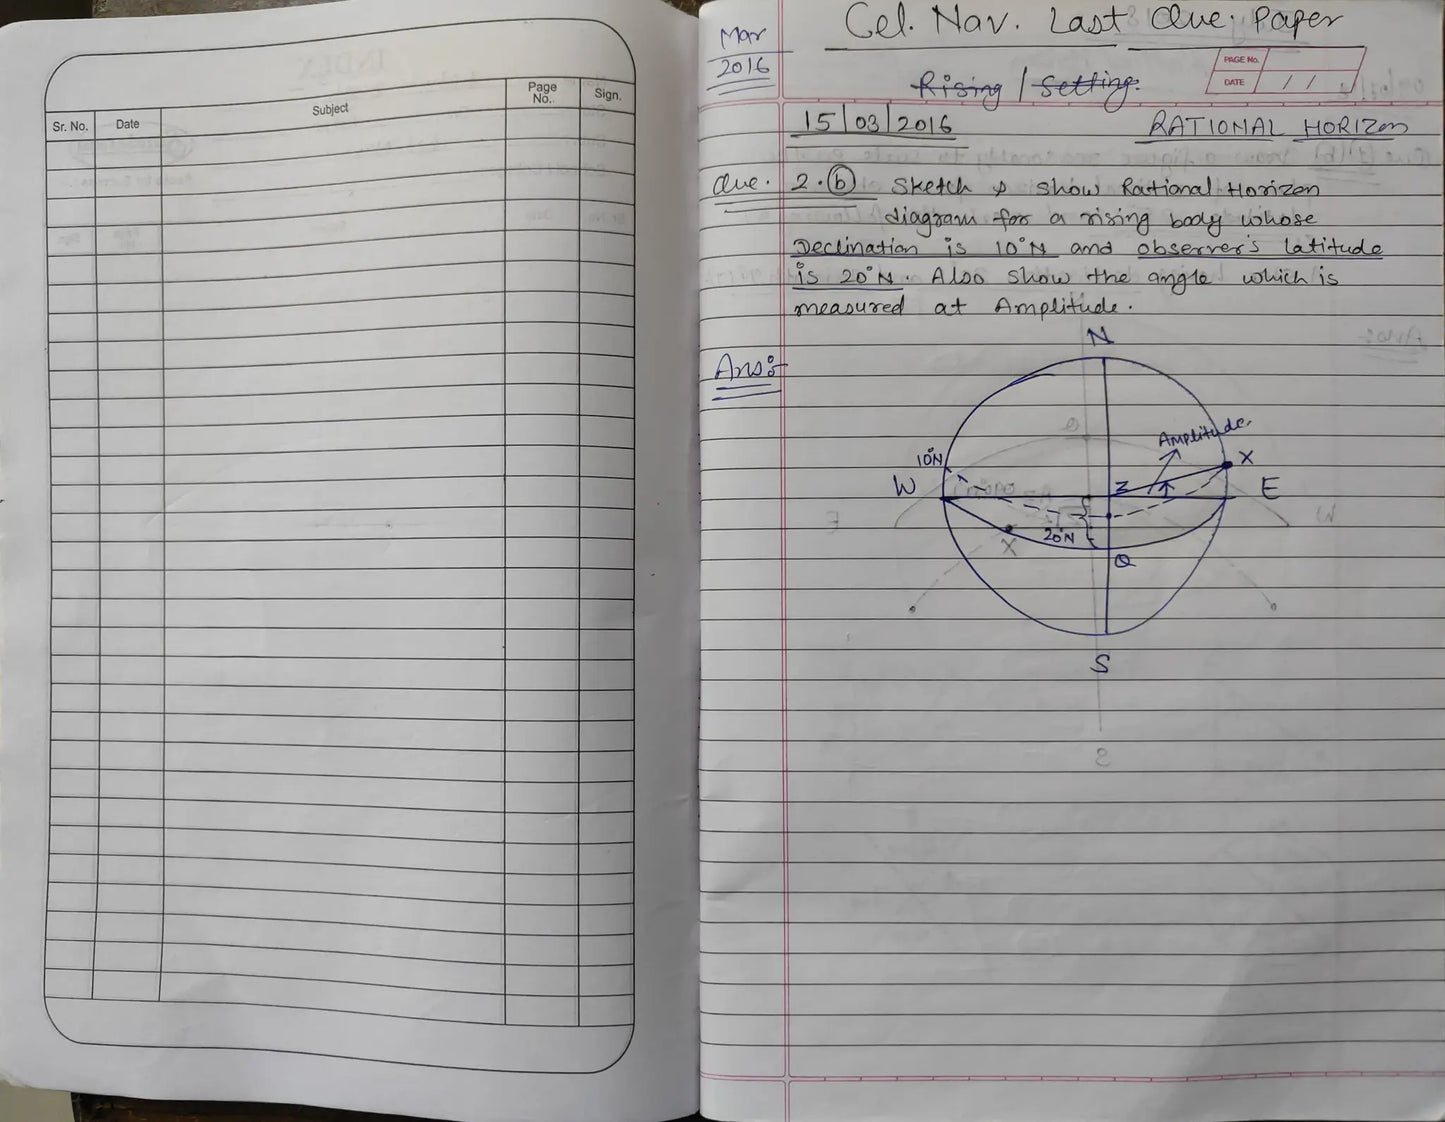 Sr. No.
Date
Subject
Page
No..
Sign.
Mar
2016
Cel. Nav. Last Que. Paper
PAGE No.
DATE / /
Rising / Setting.
15/03/2016
RATIONAL HORIZON
Que. 2.(b) Sketch & show Rational Horizen
diagram for a rising body whose
Declination is 10°N and observer's latitude
is 20°N. Also show the angle which is
measured at Amplitude.
Ans:-
N
Amplitude.
10°N
X
W
Z
E
20°N
X
Q
S